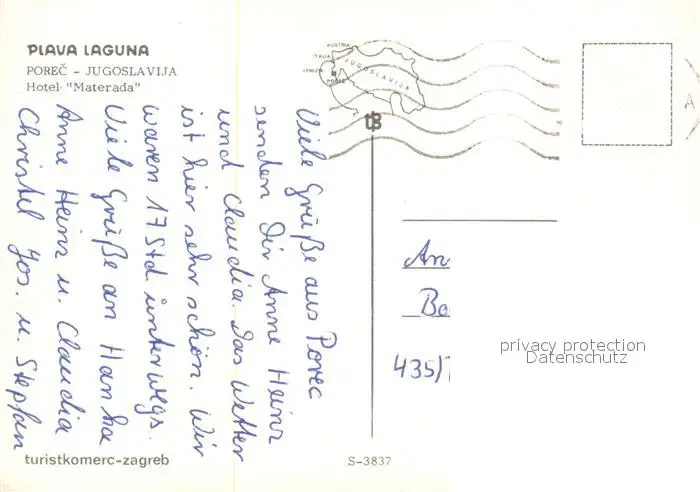 PLAVA LAGUNA
POREČ - JUGOSLAVIJA
Hotel "Materada"
AUSTRIA
ITALIA
VENEZIA
JUGOSLAVIJA
POREČ
Viele Grüße aus Porec
senden Dir Anne Heinz
und Claudia. Das Wetter
ist hier sehr schön. Wir
waren 17 Std. unterwegs.
Viele Grüße an
Anne Heinz u. Claudia
Christel Jos. u. Stephan
An
Bo
435/
privacy protection
Datenschutz
A
turistkomerc-zagreb
S-3837